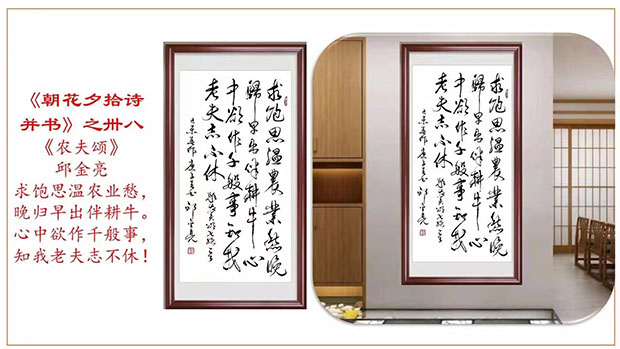 《朝花夕拾诗
并书》之卅八
《农夫颂》
邱金亮
求饱思温农业愁，
晚归早出伴耕牛。
心中欲作千般事，
知我老夫志不休！
求饱思温農業愁晚
歸早出伴耕牛心
中欲作千般事知我
老夫志不休
求饱思温農業愁晚
歸早出伴耕牛心
中欲作千般事知我
老夫志不休